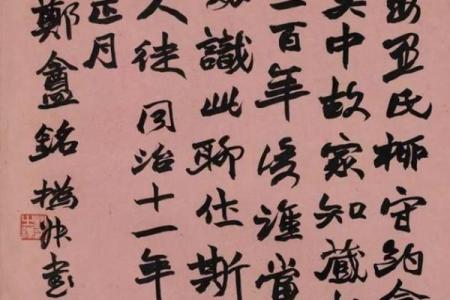 氏柳守約
吳中故家知藏
百年後誰當
識此聊仕斯
人徒同治十一年
正月
鄭盦銘撝叔書